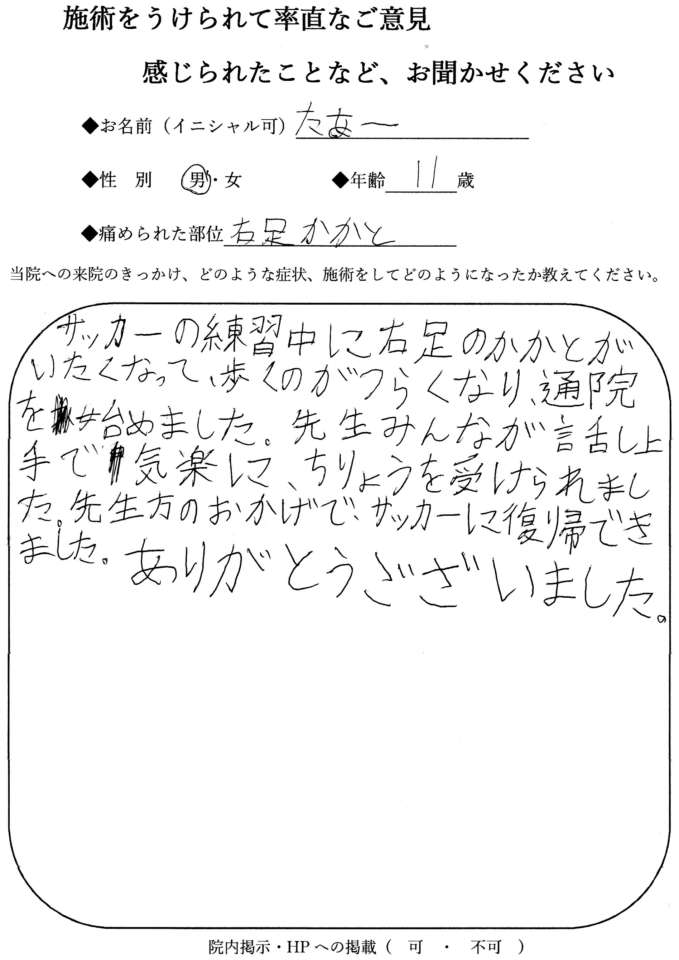 施術をうけられて率直なご意見
感じられたことなど、お聞かせください
◆お名前（イニシャル可） たぁー
◆性　別　男・女　◆年齢 11 歳
◆痛められた部位 右足かかと
当院への来院のきっかけ、どのような症状、施術をしてどのようになったか教えてください。
サッカーの練習中に右足のかかとが
いたくなって、歩くのがつらくなり、通院
を始めました。先生みんなが話し上
手で気楽に、ちりょうを受けられまし
た。先生方のおかげで、サッカーに復帰でき
ました。ありがとうございました。
院内掲示・HPへの掲載（　可　・　不可　）